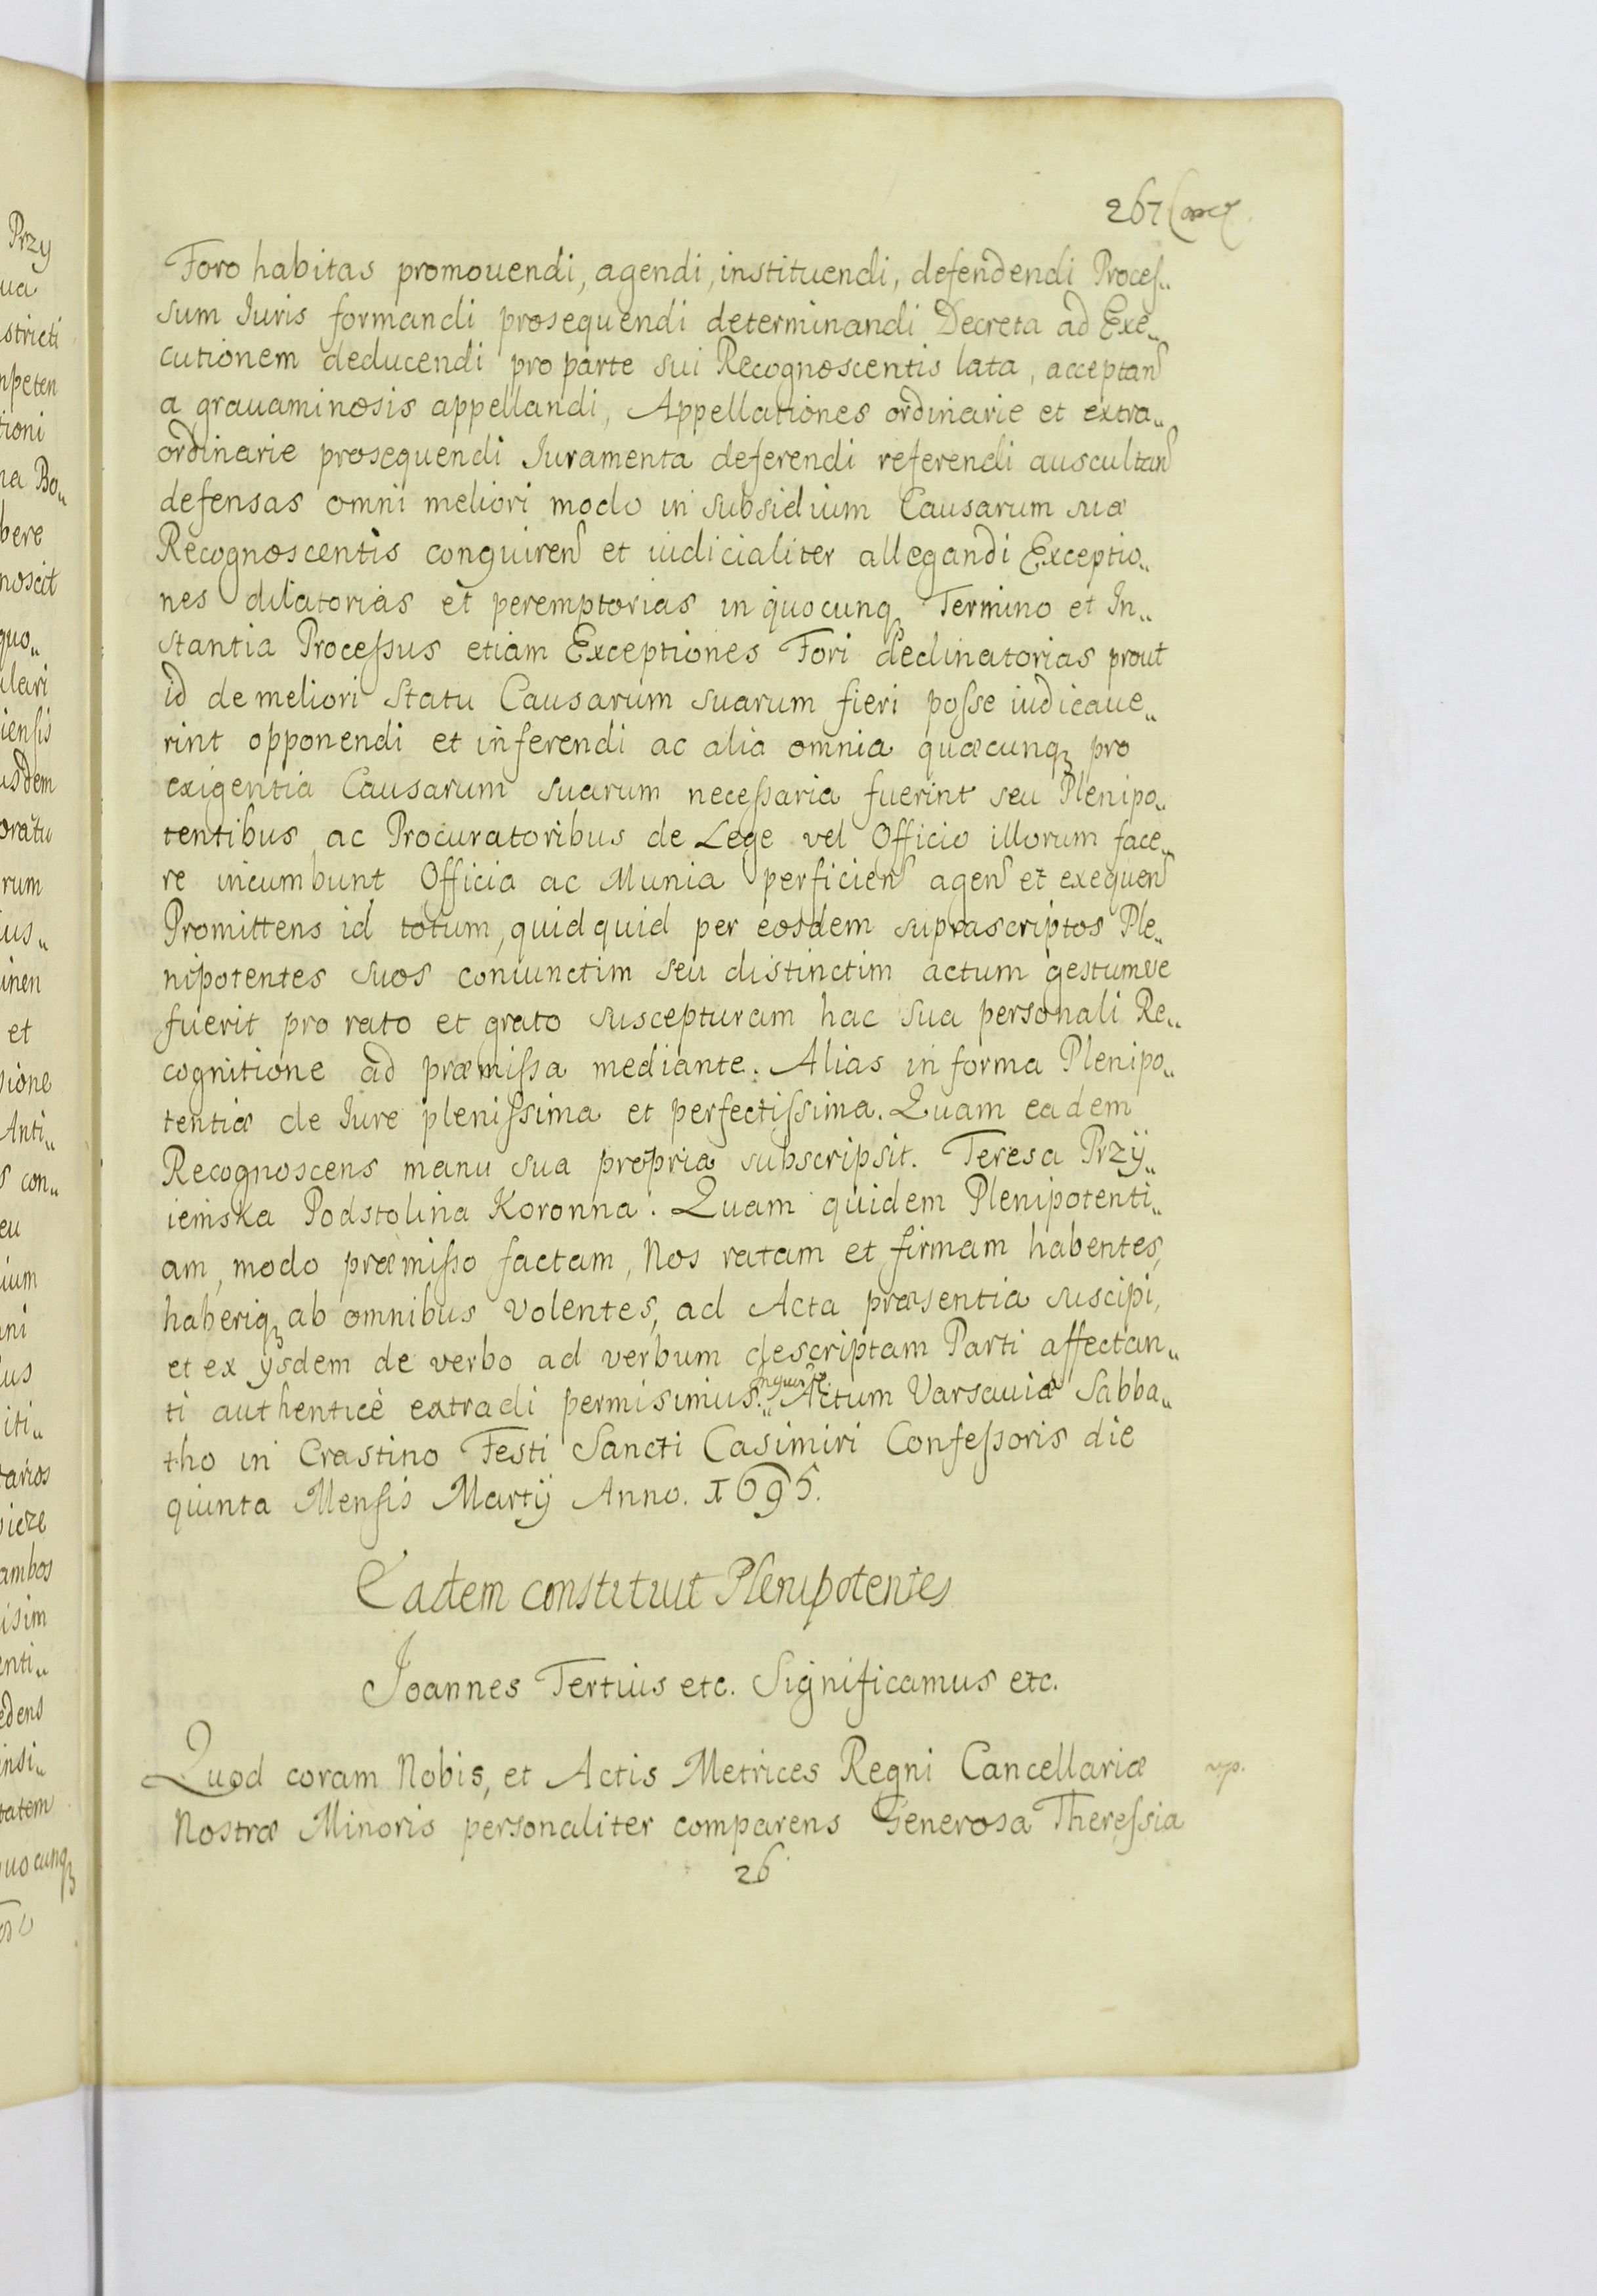 267
Foro habitas promouendi, agendi, instituendi, defendendi Proceſ„
sum Iuris formandi prosequendi determinandi Decreta ad Exe„
cutionem deducendi pro parte sui Recognoscentis lata, acceptan
a grauaminosis appellandi, Appellationes ordinarie et extra„
ordinarie prosequendi Iuramenta deferendi referendi auscultan
defensas omni meliori modo in subsidium Causarum suæ
Recognoscentis conquiren et iudicialiter allegandi Exceptio„
nes dilatorias et peremptorias in quocunqꝫ Termino et In„
stantia Proceſsus etiam Exceptiones Fori declinatorias prout
id de meliori Statu Causarum suarum fieri poſse iudicaue„
rint opponendi et inferendi ac alia omnia quæcunqꝫ pro
exigentia Causarum suarum neceſsaria fuerint seu Plenipo„
tentibus ac Procuratoribus de Lege vel Officio illorum face„
re incumbunt Officia ac Munia perficien agen et exequen
Promittens id totum, quidquid per eosdem suprascriptos Ple„
nipotentes suos coniunctim seu distinctim actum gestumue
fuerit pro rato et grato suscepturam hac sua personali Re„
cognitione ad præmiſsa mediante. Alias in forma Plenipo„
tentiæ de Iure pleniſsima et perfectiſsima. Quam eadem
Recognoscens manu sua propria subscripsit. Teresa Przÿ„
iemska Podstolina Koronna. Quam quidem Plenipotenti„
am, modo præmiſso factam, Nos ratam et firmam habentes,
haberiqꝫ ab omnibus volentes, ad Acta præsentia suscipi,
et ex ÿsdem de verbo ad verbum descriptam Parti affectan„
ti authenticè extradi permisimus. Actum Varsauiæ Sabba„
tho in Crastino Festi Sancti Casimiri Confeſsoris die
quinta Menſis Martÿ Anno. 1695.
Eadem constituit Plenipotentes
Joannes Tertius etc. Significamus etc.
Quod coram Nobis, et Actis Metrices Regni Cancellariæ
Nostræ Minoris personaliter comparens Generosa Thereſsia
26